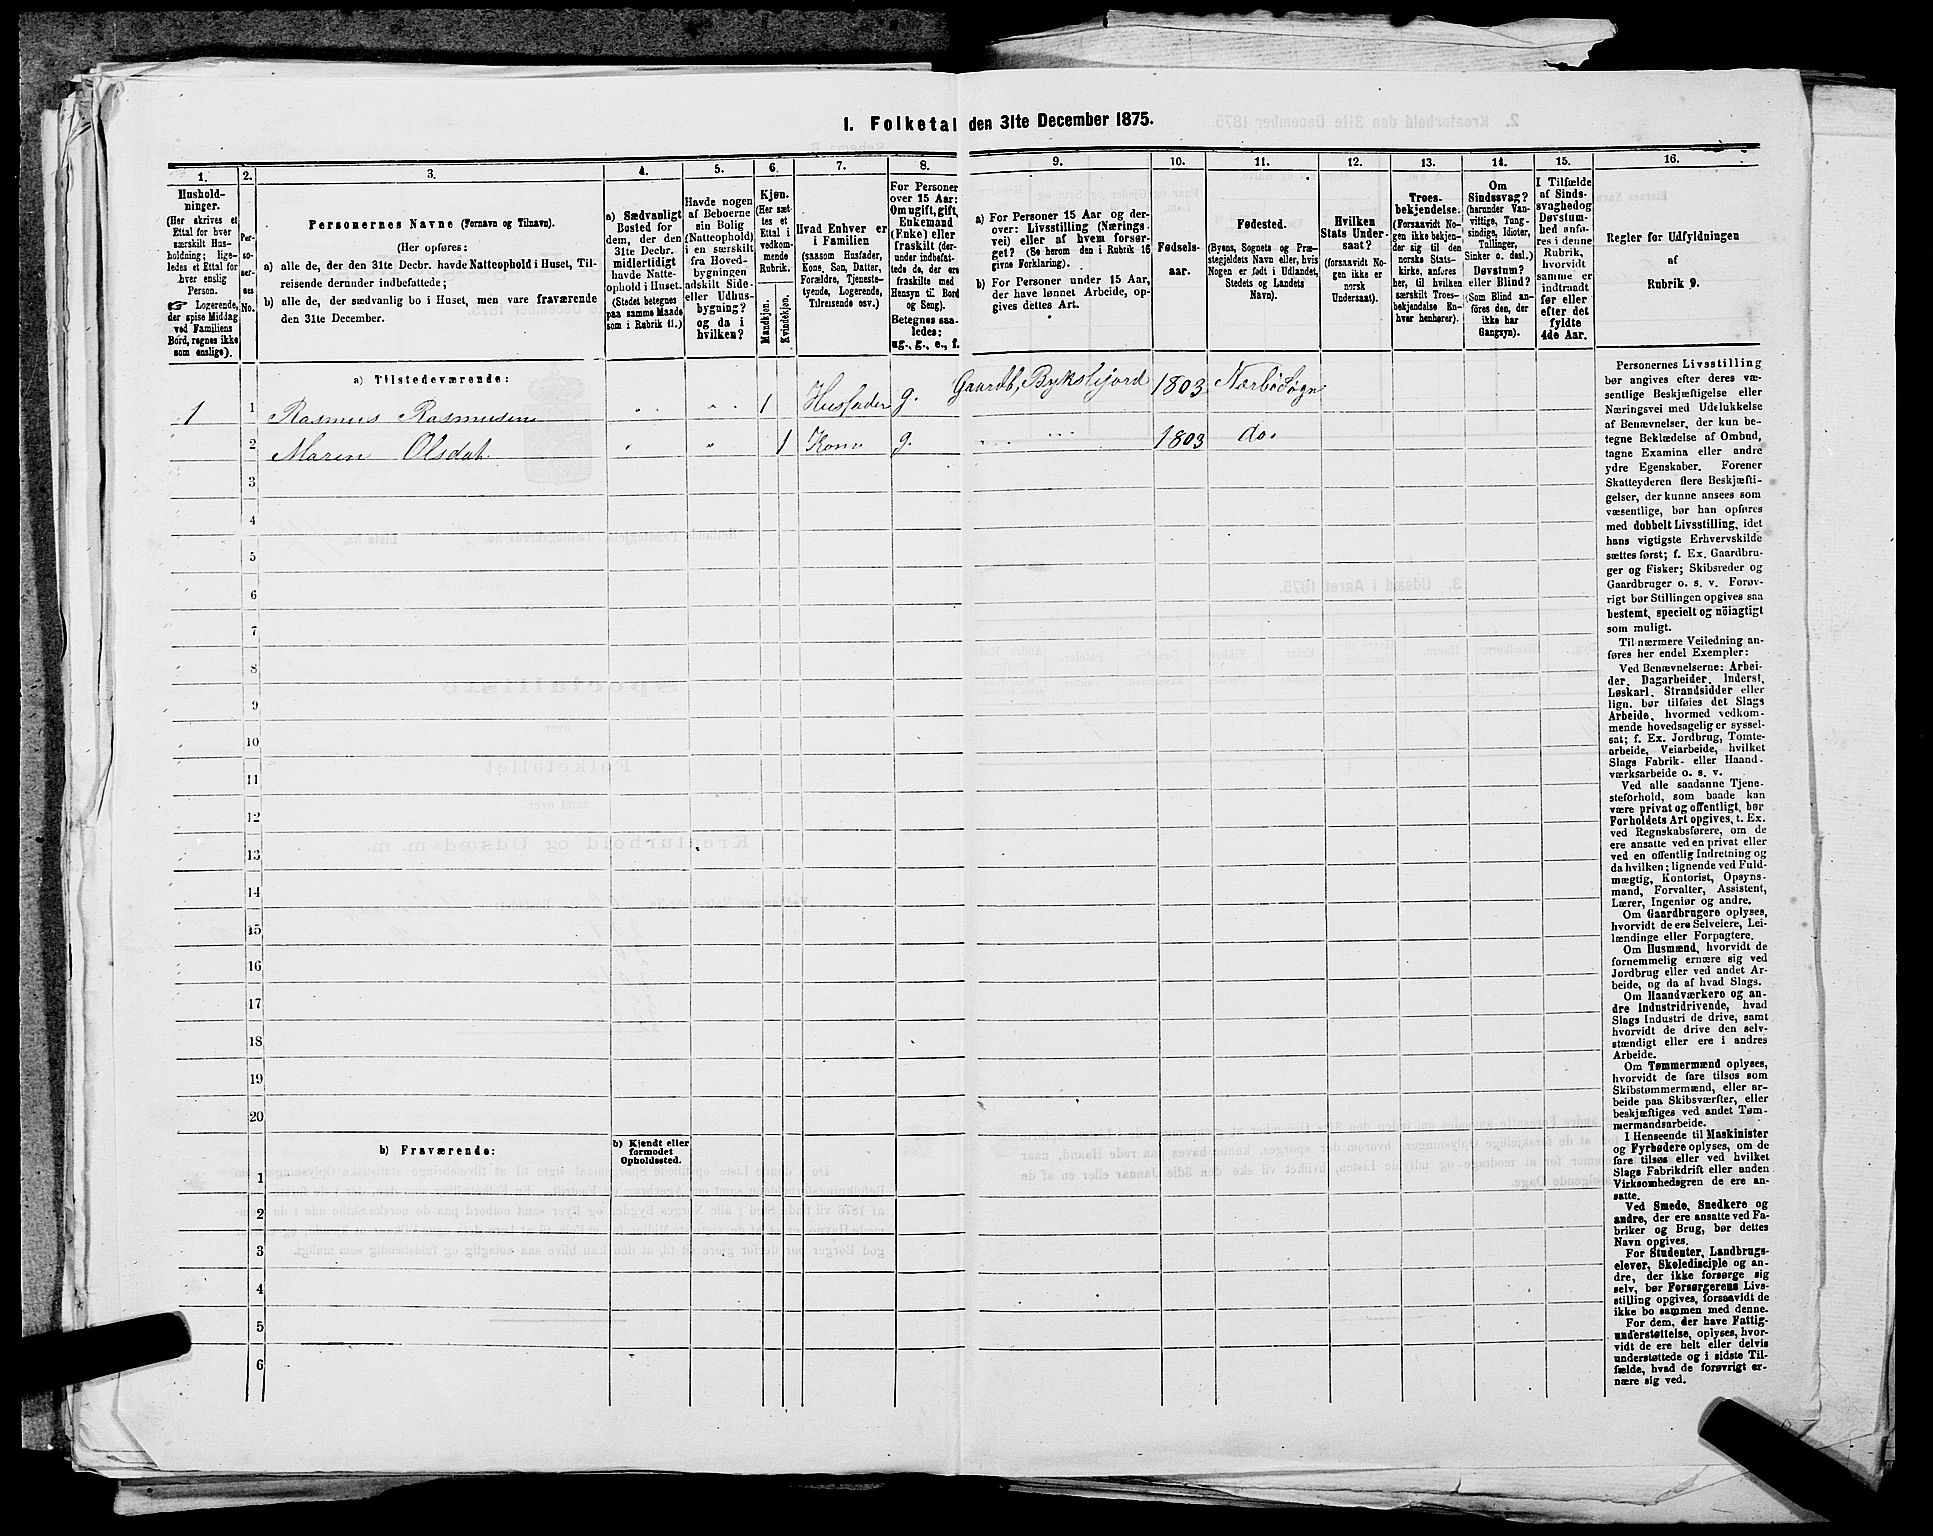 1. Folketal den 31te December 1875.
1. 2. 3. 4. 5. 6. 7. 8. 9. 10. 11. 12. 13. 14. 15. 16.
Hushold-
ninger.
(Her skrives et
Ettal for hver
særskilt Hus-
holdning; lige-
ledes et Ettal for
hver enslig
Person.
☞ Logerende,
der spise Middag
ved Familiens
Bord, regnes ikke
som enslige).
Per-
so-
ner-
nes
No.
Personernes Navne (Fornavn og Tilnavn).
(Her opføres:
a) alle de, der den 31te Decbr. havde Natteophold i Huset, Til-
reisende derunder indbefattede;
b) alle de, der sædvanlig bo i Huset, men vare fraværende
den 31te December.
a) Sædvanligt
Bosted for
dem, der den
31te Decbr.
midlertidigt
havde Natte-
ophold i Huset.
(Stedet betegnes
paa samme Maade
som i Rubrik 11.)
Havde nogen
af Beboerne
sin Bolig
(Natteophold)
i en særskilt
fra Hoved-
bygningen
adskilt Side-
eller Udhus-
bygning?
og da i
hvilken?
Kjøn.
(Her sæt-
tes et
Ettal i
vedkom-
mende
Rubrik.
Mandkjøn.
Kvindekjøn.
Hvad Enhver er
i Familien
(saasom Husfader,
Kone, Søn, Datter,
Forældre, Tjeneste-
tyende, Logerende,
Tilreisende osv.)
For Personer
over 15 Aar:
Om ugift, gift,
Enkemand
(Enke) eller
fraskilt (der-
under indbefat-
tede de, der ere
fraskilte med
Hensyn til Bord
og Seng).
Betegnes saa-
ledes:
ug., g., e., f.
a) For Personer 15 Aar og der-
over: Livsstilling (Nærings-
vei) eller af hvem forsør-
get? (Se herom den i Rubrik 16
givne Forklaring).
b) For Personer under 15 Aar,
der have lønnet Arbeide, op-
gives dettes Art.
Fødsels-
aar.
Fødested.
(Byens, Sognets og Præ-
stegjeldets Navn eller, hvis
Nogen er født i Udlandet,
Stedets og Landets
Navn).
Hvilken
Stats Under-
saat?
(forsaavidt No-
gen ikke er
norsk
Undersaat).
Troes-
bekjendelse.
(Forsaavidt No-
gen ikke bekjen-
der sig til den
norske Stats-
kirke, anføres
her, til hvilken
særskilt Troes-
bekjendelse En-
hver henhører).
Om
Sindssvag?
(herunder Van-
vittige, Tung-
sindige, Idioter,
Tullinger,
Sinker o. desl.)
Døvstum?
eller Blind?
(Som Blind an-
føres den, der
ikke har
Gangsyn).
I Tilfælde
af Sinds-
svaghed og
Døvstum-
hed anfø-
res i denne
Rubrik,
hvorvidt
samme er
indtraadt
før eller
efter det
fyldte
4de Aar.
Regler for Udfyldningen
af
Rubrik 9.
a) Tilstedeværende:
1 1 Rasmus Rasmusen " " 1 Husfader g. Gaardb, 1803 Nærbø Sogn
2 Maren Olsdat " " 1 Kone g. " " 1803 do.
3
4
5
6
7
8
9
10
11
12
13
14
15
16
17
18
19
20
b) Fraværende:
b) Kjendt eller
formodet
Opholdssted.
1
2
3
4
5
6
Personernes Livsstilling
bør angives efter deres væ-
sentlige Beskjæftigelse eller
Næringsvei med Udelukkelse
af Benævnelser, der kun be-
tegne Beklædelse af Ombud,
tagne Examina eller andre
ydre Egenskaber. Forener
Skatteyderen flere Beskjæfti-
gelser, der kunne ansees som
væsentlige, bør han opføres
med dobbelt Livsstilling, idet
hans vigtigste Erhvervskilde
sættes først; f. Ex. Gaardbru-
ger og Fisker; Skibsreder og
Gaardbruger o. s. v. Forøv-
rigt bør Stillingen opgives saa
bestemt, specielt og nöiagtigt
som muligt.
Til nærmere Veiledning an-
føres her endel Exempler:
Ved Benævnelserne: Arbei-
der, Dagarbeider, Inderst,
Løskarl, Strandsidder eller
lign. bør tilføies det Slags
Arbeide, hvormed vedkom-
mende hovedsagelig er syssel-
sat; f. Ex. Jordbrug, Tomte-
arbeide, Veiarbeide, hvilket
Slags Fabrik- eller Haand-
værksarbeide o. s. v.
Ved alle saadanne Tjene-
steforhold, som baade kan
være privat og offentligt, bør
Forholdets Art opgives, t. Ex.
ved Regnskabsførere, om de
ere ansatte ved en privat eller
ved en offentlig Indretning og
da hvilken; lignende ved Fuld-
mægtig, Kontorist, Opsyns-
mand, Forvalter, Assistent,
Lærer, Ingeniør og andre.
Om Gaardbrugere oplyses,
hvorvidt de ere Selveiere, Lei-
lændinge eller Forpagtere.
Om Husmænd, hvorvidt de
fornemmelig ernære sig ved
Jordbrug eller ved andet Ar-
beide, og da af hvad Slags.
Om Haandværkere og an-
dre Industridrivende, hvad
Slags Industri de drive, samt
hvorvidt de drive den selv-
stændigt eller ere i andres
Arbeide.
Om Tømmermænd oplyses,
hvorvidt de fare tilsøs som
Skibstømmermænd, eller ar-
beide paa Skibsværfter, eller
beskjæftiges ved andet Tøm-
mermandsarbeide.
I Henseende til Maskinister
og Fyrbødere oplyses, om de
fare tilsøs eller ved hvilket
Slags Fabrikdrift eller anden
Virksomhedsgren de ere an-
satte.
Ved Smede, Snedkere og
andre, der ere ansatte ved Fa-
briker og Brug, bør dettes
Navn opgives.
For Studenter, Landbrugs-
elever, Skoledisciple og an-
dre, der ikke forsørge sig
selv, bør Forsørgerens Livs-
stilling opgives, forsaavidt de
ikke bo sammen med denne.
For dem, der have Fattig-
understøttelse, oplyses, hvor-
vidt de ere helt eller delvis
understøttede og i sidste Til-
fælde, hvad de forøvrigt er-
nære sig ved.